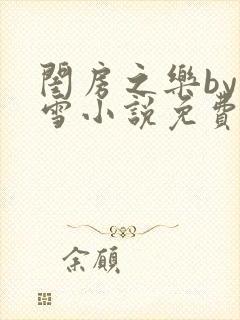 閨房之樂by
雪小說免費
余願